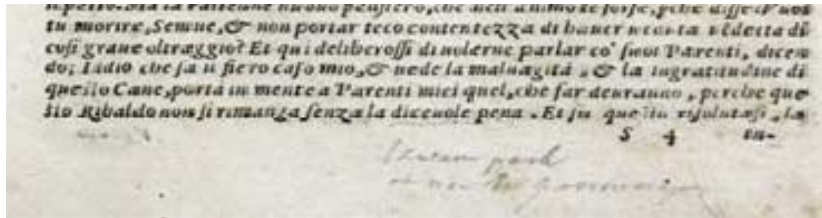 rispetto. Ma la rattenne nuouo pensiero, che nell'animo le sorse, pche disse: Vuoi
tu morire, Semne, & non portar teco contentezza di hauer ueduta uēdetta di
cosi graue oltraggio? Et qui deliberossi di uolerne parlar co' suoi Parenti, dicen
do; Iddio che sa il fiero caso mio, & uede la maluagità, & la ingratitudine di
questo Cane, porrà in mente a Parenti miei quel, che far deuranno, perche que
sto Ribaldo non si rimanga senza la diceuole pena. Et in questo risolutasi, la
S 4 en-